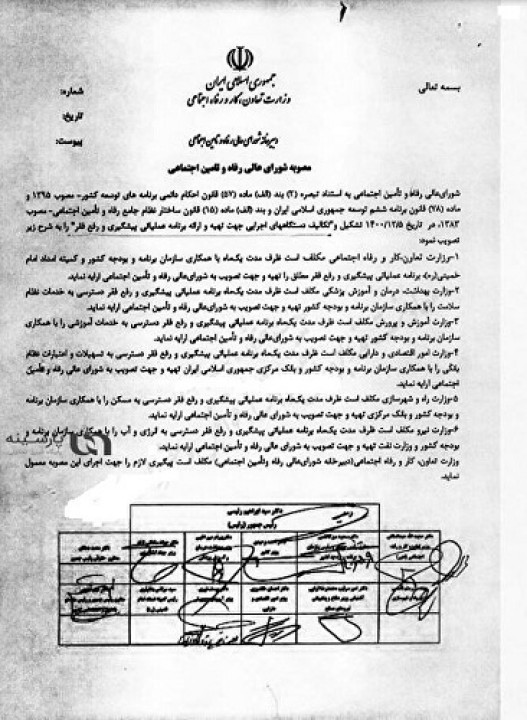 بسمه تعالی
جمهوری اسلامی ایران
وزارت تعاون، کار و رفاه اجتماعی
شماره:
تاریخ:
پیوست:
دبیرخانه شورای عالی رفاه و تامین اجتماعی
مصوبه شورای عالی رفاه و تامین اجتماعی
شورای‌عالی رفاه و تأمین اجتماعی به استناد تبصره (۲) بند (الف) ماده (۵۷) قانون احکام دائمی برنامه های توسعه کشور- مصوب ۱۳۹۵ و
ماده (۷۸) قانون برنامه ششم توسعه جمهوری اسلامی ایران و بند (الف) ماده (۱۵) قانون ساختار نظام جامع رفاه و تأمین اجتماعی- مصوب
۱۳۸۳، در تاریخ ۱۴۰۰/۱۲/۵ تشکیل و "تکالیف دستگاههای اجرایی جهت تهیه و ارائه برنامه عملیاتی پیشگیری و رفع فقر" را به شرح زیر
تصویب نمود:
۱-وزارت تعاون،کار و رفاه اجتماعی مکلف است ظرف مدت یک‌ماه با همکاری سازمان برنامه و بودجه کشور و کمیته امداد امام
خمینی(ره)، برنامه عملیاتی پیشگیری و رفع فقر مطلق را تهیه و جهت تصویب به شورای‌عالی رفاه و تأمین اجتماعی ارایه نماید.
۲-وزارت بهداشت، درمان و آموزش پزشکی مکلف است ظرف مدت یک‌ماه برنامه عملیاتی پیشگیری و رفع فقر دسترسی به خدمات نظام
سلامت را با همکاری سازمان برنامه و بودجه کشور تهیه و جهت تصویب به شورای‌عالی رفاه و تأمین اجتماعی ارایه نماید.
۳-وزارت آموزش و پرورش مکلف است ظرف مدت یک‌ماه برنامه عملیاتی پیشگیری و رفع فقر دسترسی به خدمات آموزشی را با همکاری
سازمان برنامه و بودجه کشور تهیه و جهت تصویب به شورای عالی رفاه و تأمین اجتماعی ارایه نماید.
۴-وزارت امور اقتصادی و دارایی مکلف است ظرف مدت یک‌ماه برنامه عملیاتی پیشگیری و رفع فقر دسترسی به تسهیلات و اعتبارات نظام
بانکی را با همکاری سازمان برنامه و بودجه کشور و بانک مرکزی جمهوری اسلامی ایران تهیه و جهت تصویب به شورای عالی رفاه و تأمین
اجتماعی ارایه نماید.
۵-وزارت راه و شهرسازی مکلف است ظرف مدت یک‌ماه برنامه عملیاتی پیشگیری و رفع فقر دسترسی به مسکن را با همکاری سازمان برنامه
و بودجه کشور و بانک مرکزی تهیه و جهت تصویب به شورای عالی رفاه و تأمین اجتماعی ارایه نماید.
۶-وزارت نیرو مکلف است ظرف مدت یک‌ماه برنامه عملیاتی پیشگیری و رفع فقر دسترسی به انرژی و آب را با همکاری سازمان برنامه و
بودجه کشور و وزارت نفت تهیه و جهت تصویب به شورای عالی رفاه و تأمین اجتماعی ارایه نماید.
وزارت تعاون، کار و رفاه اجتماعی(دبیرخانه شورای‌عالی رفاه وتأمین اجتماعی) مکلف است پیگیری لازم را جهت اجرای این مصوبه معمول
نماید.
پارسینه
دکتر سید ابراهیم رئیسی
رئیس جمهور (رئیس)